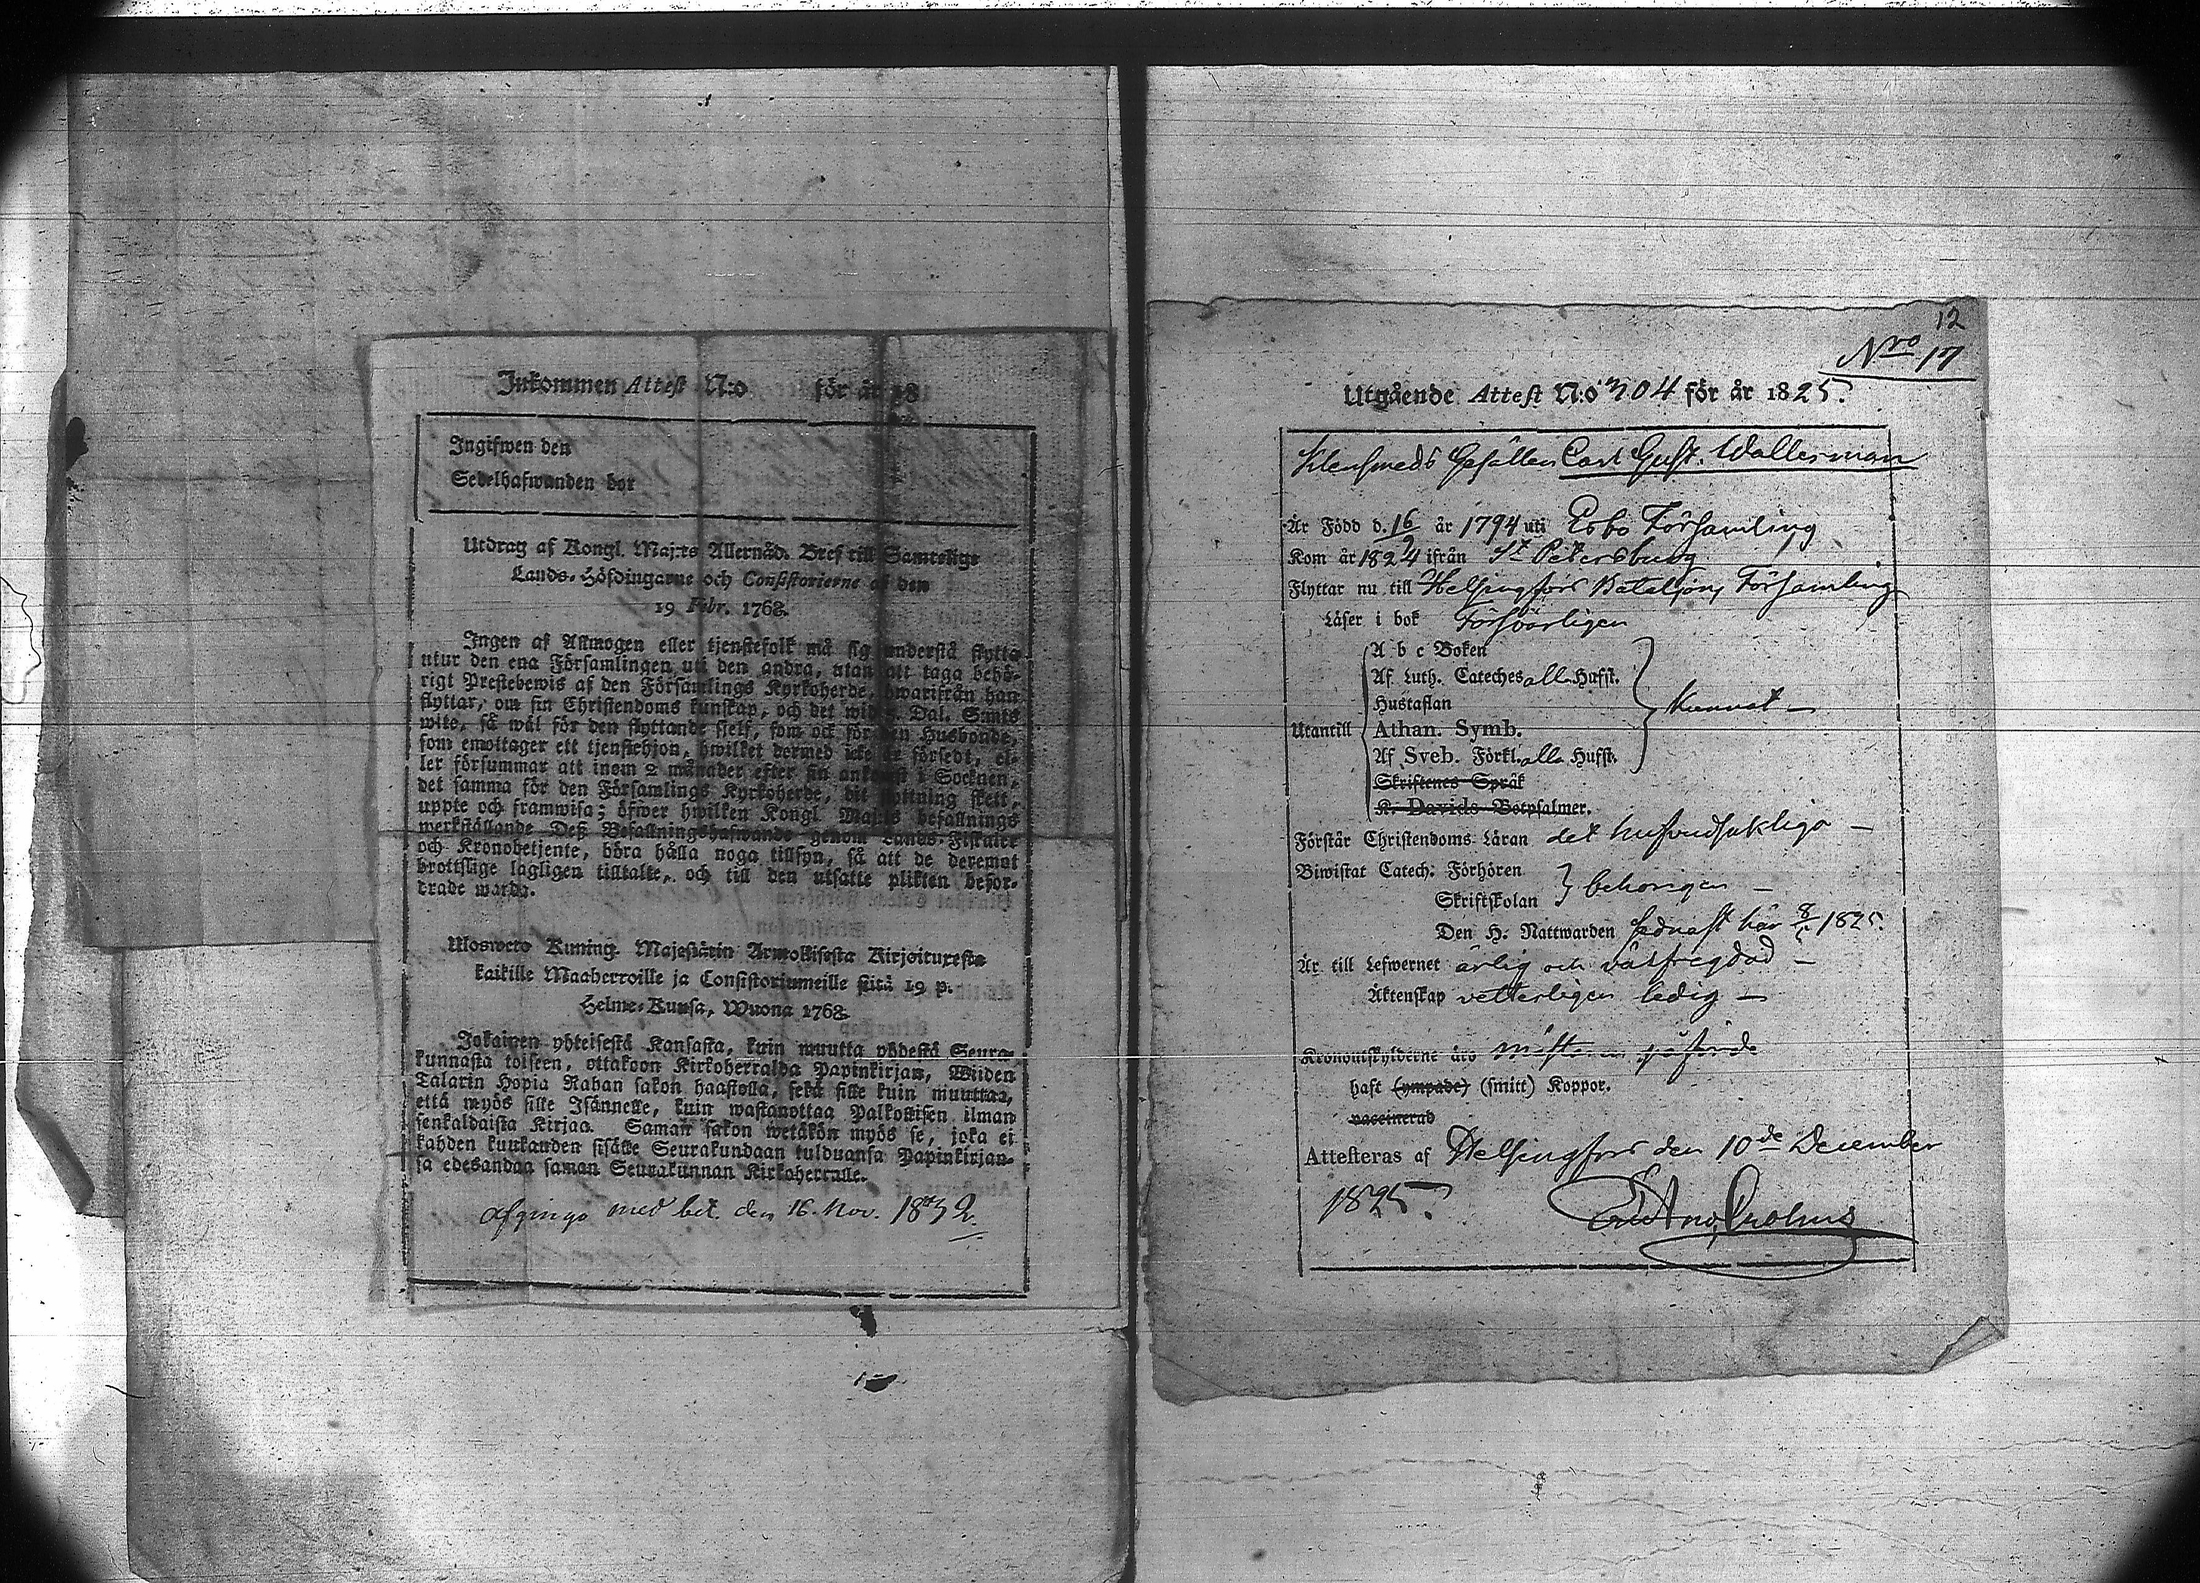 Inkommen Attest N:o för år 18
Ingifwen den
Sedelhafwanden bor
Utdrag af Kongl. Maj:ts Allernåd. Bref till Samtelige
Lands-Höfdingarne och Consistorierne af den
19 Febr. 1768.
Ingen af Allmogen eller tjenstefolk må sig understå flytta
utur den ena Församlingen uti den andra, utan att taga behö-
rigt Prestebewis af den Församlings Kyrkoherde, hwarifrån han
flyttar, om sin Christendoms kunskap, och det wid 5. Dal. S:mts
wite, så wäl för den flyttande sjelf, som ock för den Husbonde,
som emottager ett tjenstehjon, hwilket dermed icke är försedt, el-
ler försummar att inom 2 månader efter sin ankomst i Socknen,
det samma för den Församlings Kyrkoherde, dit flyttning skett,
uppte och framwisa; öfwer hwilken Kongl. Maj:ts befallnings
werkställande Deß Befallningshafwande genom Lands-Fiskaler
och Kronobetjente, böra hålla noga tillsyn, så att de deremot
brottslige lagligen tilltalte, och till den utsatte plikten befor-
drade warda.
Ulosweto Kuning. Majestätin Armollisesta Kirjoituxesta
kaikille Maaherroille ja Consistoriumeille siitä 19 p.
Helme-Kuusa, Wuona 1768.
Jokainen yhteisestä Kansasta, kuin muutta yhdestä Seura-
kunnasta toiseen, ottakoon Kirkoherralda Papinkirjan, Wiiden
Talarin Hopia Rahan sakon haastolla, sekä sille kuin muuttaa,
että myös sille Isännelle, kuin wastanottaa Palkollisen ilman
senkaldaista Kirjaa. Saman sakon wetäkön myös se, joka ei
kahden kuukauden sisälle Seurakundaan tulduansa Papinkirjan-
sa edesandaa saman Seurakunnan Kirkoherralle.
afgingo med bet. den 16. Nov. 1832.
12
Nro 17
Utgående Attest N:o 304 för år 1825.
Klensmeds Gesällen Carl Gust. Wallerman
Är Född d. 16/9 år 1794 uti Esbo Församling
Kom år 1824 ifrån St Petersburg
Flyttar nu till Helsingfors Bataljons Församling
Läser i bok Försvarligen
A b c Boken
Af Luth. Cateches alla Hufst.
Hustaflan
Utantill Athan. Symb. Kunnat
Af Sveb. Förkl. alla Hufst.
Skriftenes Språk
K. Davids Botpsalmer.
Förstår Christendoms Läran det hufvudsakliga
Biwistat Catech: Förhören
Skriftskolan behörigen
Den H. Nattwarden sednast här 1825.
Är till Lefwernet ärlig och välfregdad
Äktenskap vetterligen ledig
Kronoutskylderne äro
haft (ympade) (smitt) Koppor.
vaccinerad
Attesteras af Helsingfors den 10de December
1825.
Crohns